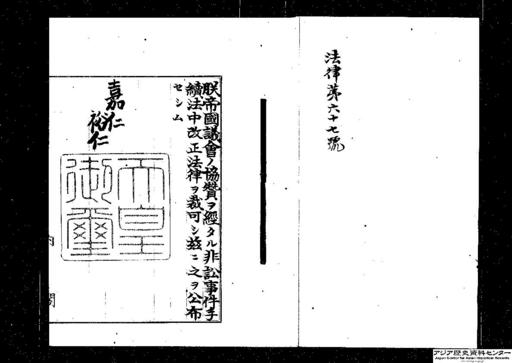 法律第六十七號
朕帝國議會ノ協贊ヲ經タル非訟事件手
續法中改正法律ヲ裁可シ茲ニ之ヲ公布
セシム
嘉仁
裕仁
天皇
御璽
内閣
アジア歴史資料センター
Japan Center for Asian Historical Records